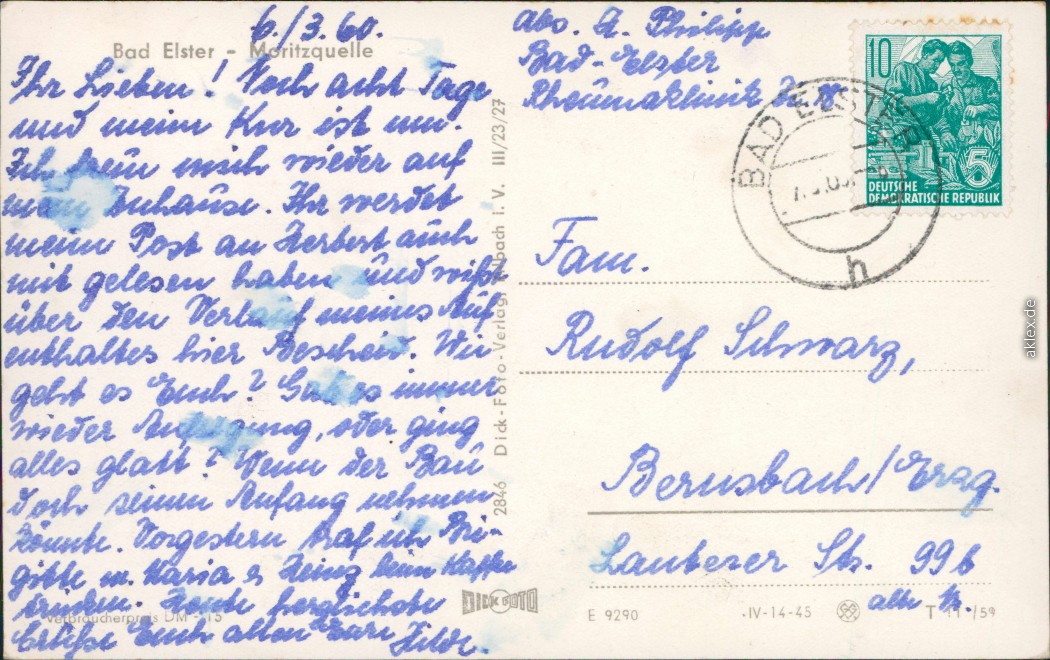 6./3.60.
Bad Elster - Moritzquelle
Ihr Lieben! Noch acht Tage
und meine Kur ist um.
Ich freu mich wieder auf
mein Zuhause. Ihr werdet
meine Post an Herbert auch
mit gelesen haben und wißt
über den Verlauf meines Auf
enthaltes hier Bescheid. Wie
geht es Euch? Gab es immer
wieder Aufregung, oder ging
alles glatt? Wenn der Bau
doch seinen Anfang nehmen
könnte. Vorgestern traf ich Bri-
gitte m. Maria b. Heinz beim Kaffee
trinken. Heute
Verbraucherpreis DM -,15
Grüße Euch allen Eure Hilde.
2846 Dick-Foto-Verlag, i. V. III/23/27
DICK FOTO
Abs. H. Philipp
Bad-Elster
Rheumaklinik
10
DEUTSCHE
DEMOKRATISCHE REPUBLIK
5
BAD ELSTER
h
Fam.
Rudolf Schwarz,
Bernsbach/Erzg.
Lauterer Str. 99b
alte Nr.
E 9290
·IV-14-45
T 11/59
aklex.de